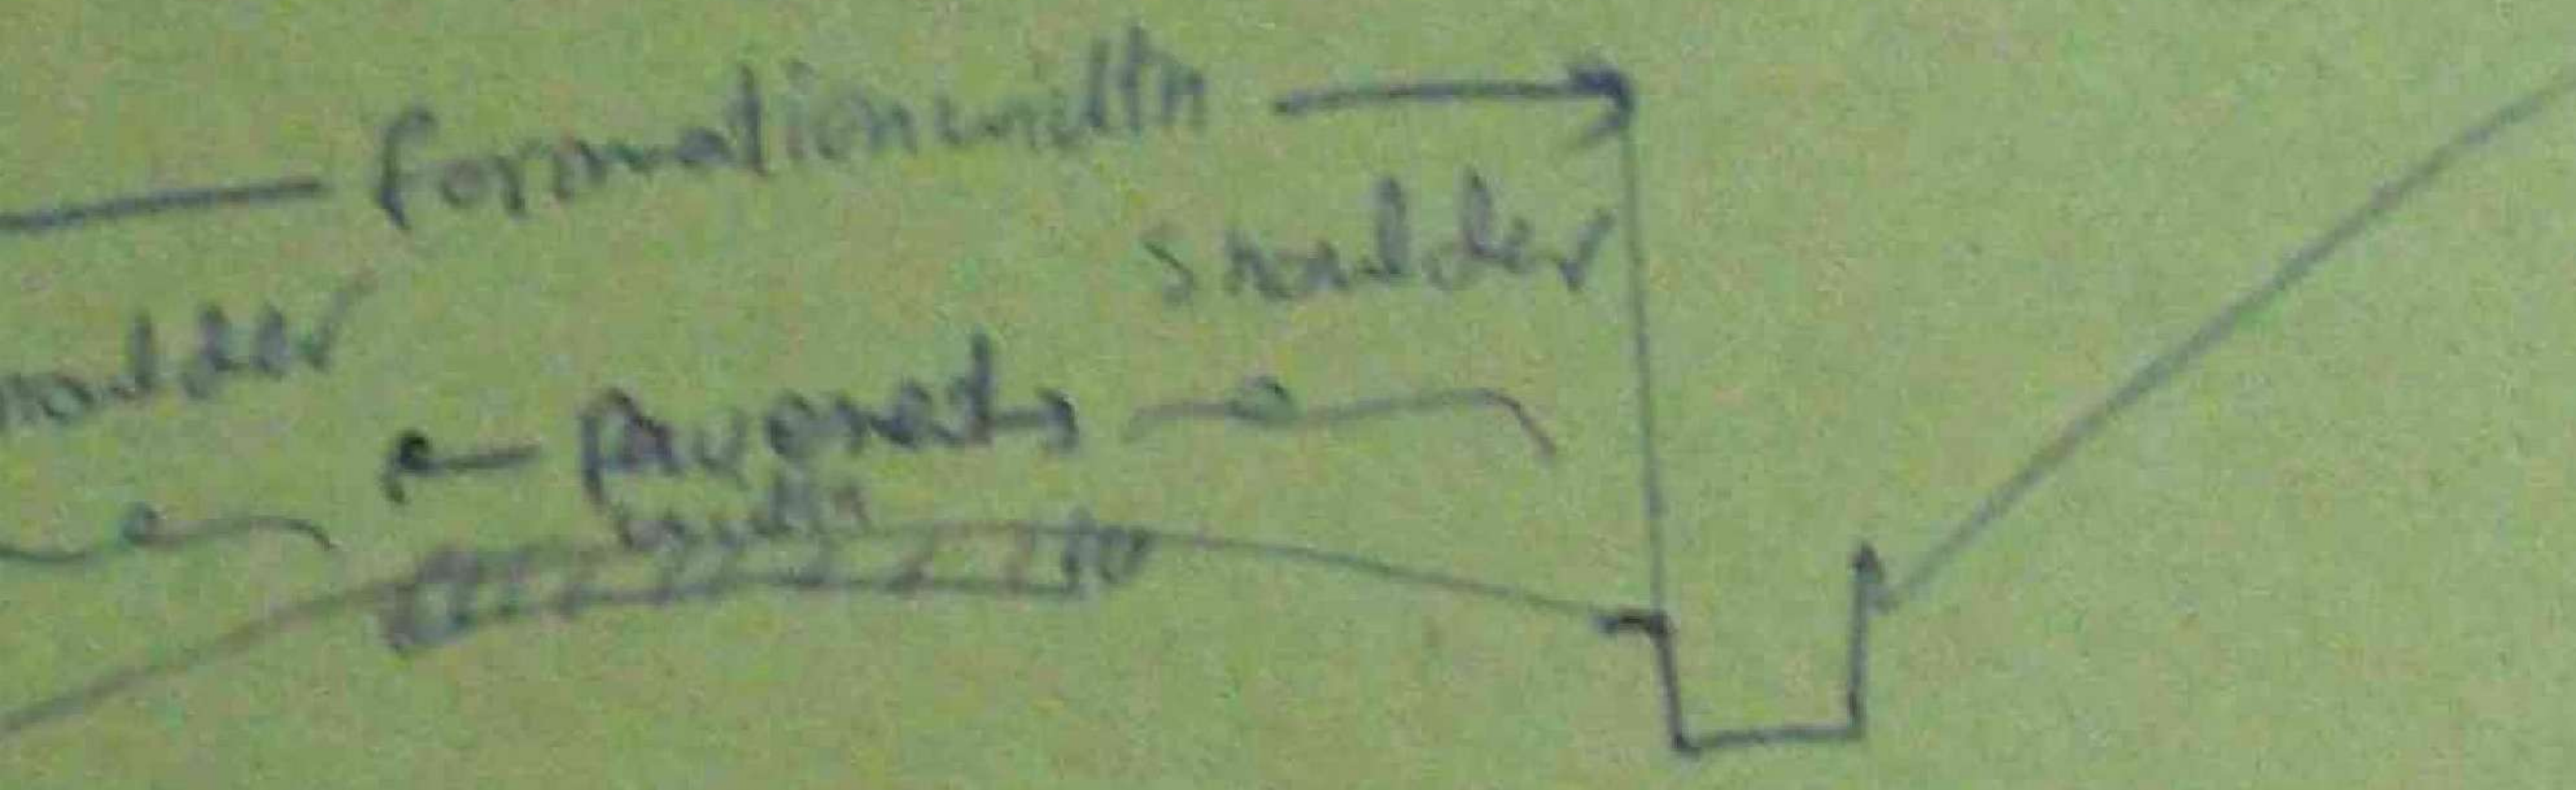 formation width
shoulder
houlder
Pavement
width